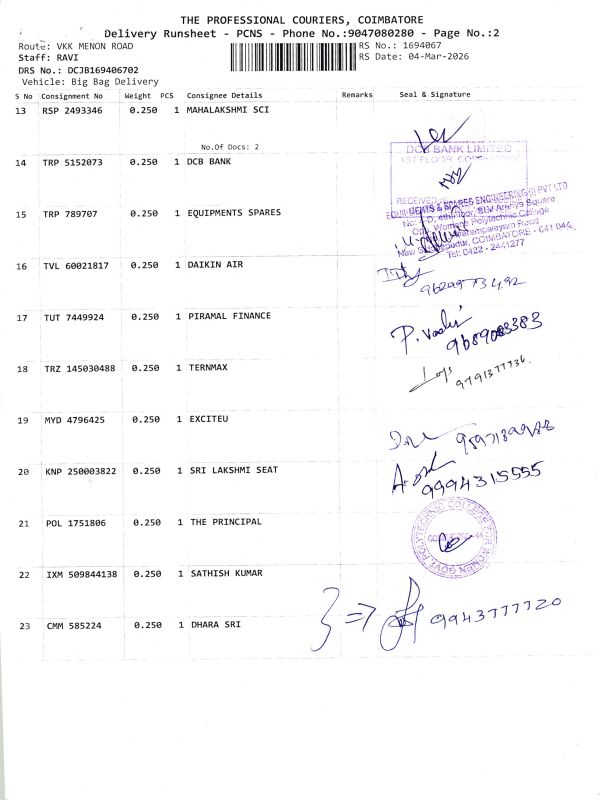 THE PROFESSIONAL COURIERS, COIMBATORE
Delivery Runsheet - PCNS - Phone No.:9047080280 - Page No.:2
Route: VKK MENON ROAD
RS No.: 1694067
Staff: RAVI
RS Date: 04-Mar-2026
DRS No.: DCJB169406702
Vehicle: Big Bag Delivery
S No Consignment No Weight PCS Consignee Details Remarks Seal & Signature
13 RSP 2493346 0.250 1 MAHALAKSHMI SCI
No.Of Docs: 2
DCB BANK LIMITED
1ST FLOOR COIMBATORE
14 TRP 5152073 0.250 1 DCB BANK
RECEIVED
EQUIPMENTS & SPARES ENGINEERING (I) PVT LTD
15 TRP 789707 0.250 1 EQUIPMENTS SPARES
Women's Polytechnic College
COIMBATORE - 641 044.
Tel: 0422 - 2441277
16 TVL 60021817 0.250 1 DAIKIN AIR
17 TUT 7449924 0.250 1 PIRAMAL FINANCE
18 TRZ 145030488 0.250 1 TERNMAX
9791377736.
19 MYD 4796425 0.250 1 EXCITEU
20 KNP 250003822 0.250 1 SRI LAKSHMI SEAT
9994315555
21 POL 1751806 0.250 1 THE PRINCIPAL
GOVT POLYTECHNIC COLLEGE FOR WOMEN
22 IXM 509844138 0.250 1 SATHISH KUMAR
23 CMM 585224 0.250 1 DHARA SRI
9943777720